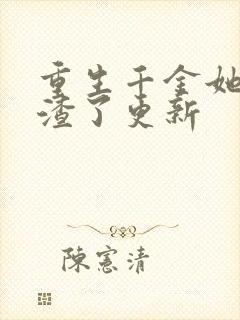 重生千金她
渣了更新
陳憲清